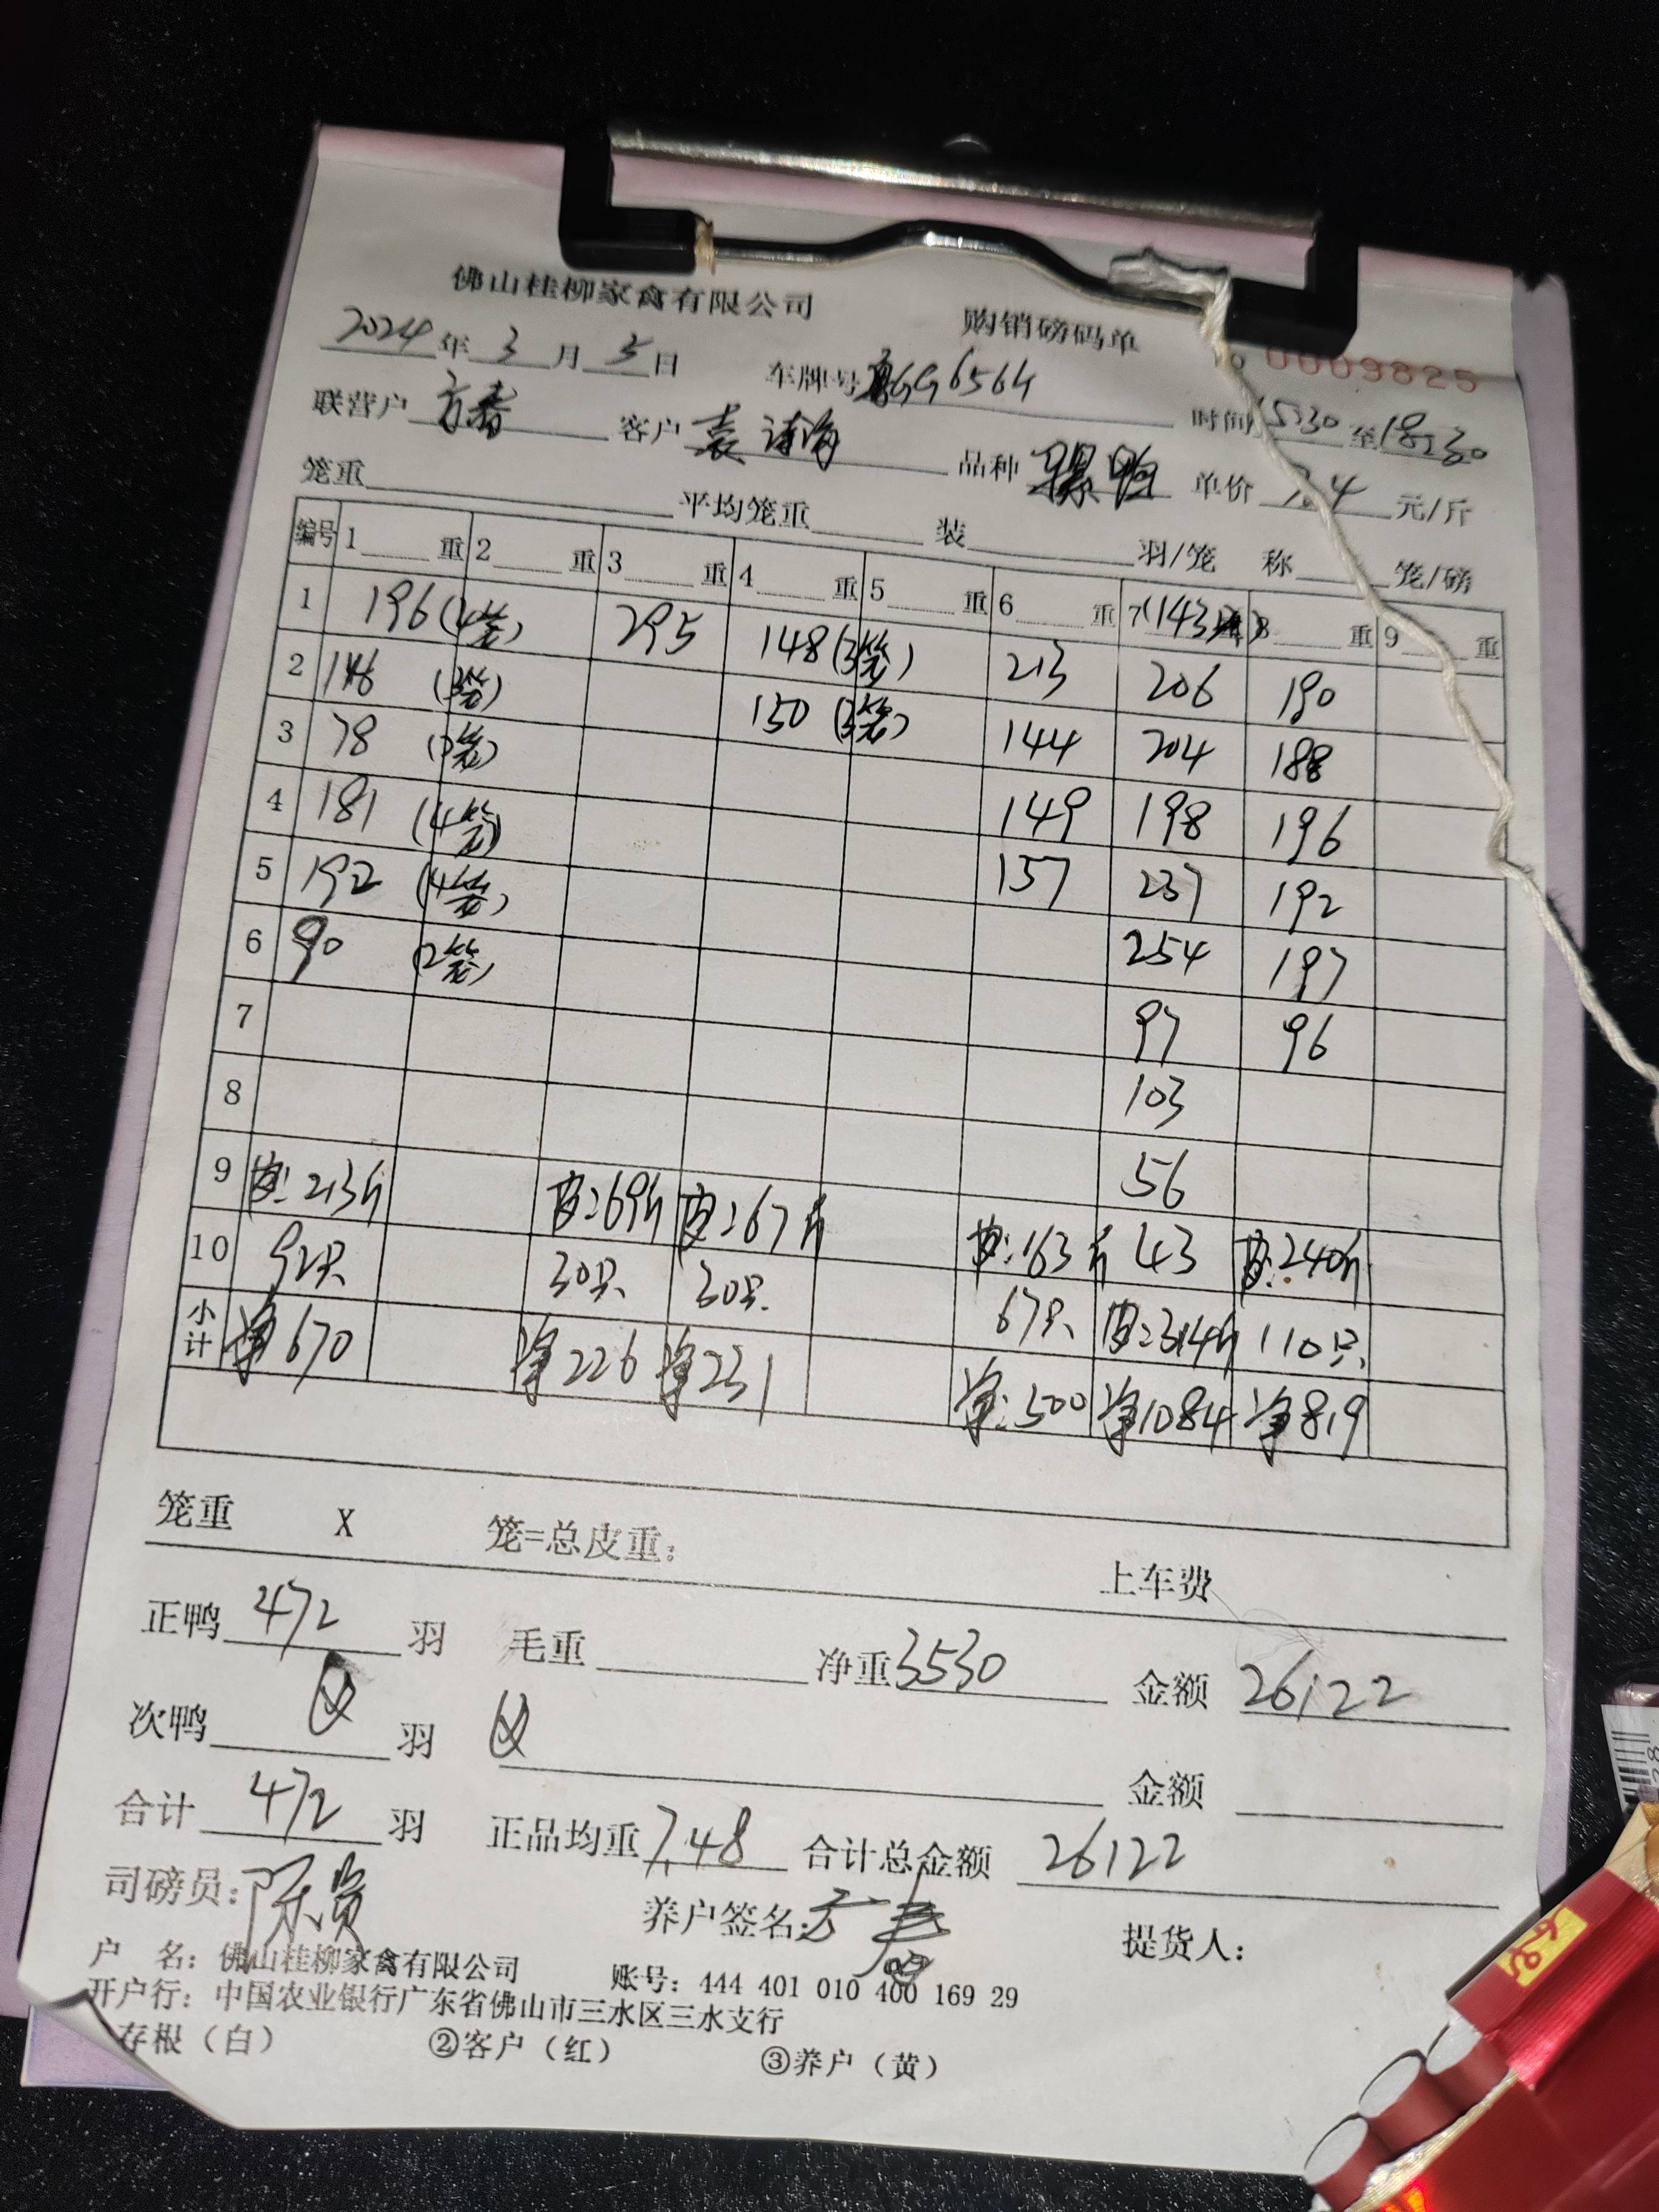 佛山桂柳家禽有限公司 购销磅码单
2024年3月5日 车牌号 G6564 No 0009825
联营户 方春 客户 袁 品种 骡鸭 时间15:30至18:30
笼重 平均笼重 装 羽/笼 单价 7.4 元/斤
称 笼/磅
编号 1 重 2 重 3 重 4 重 5 重 6 重 7 (143只) 8 重 9 重
1 196(4笼) 295 148(3笼) 213 206 190
2 146 (3笼) 150 (3笼) 144 204 188
3 78 (2笼) 149 198 196
4 181 (4笼) 157 237 192
5 192 (4笼) 254 197
6 90 (2笼) 97 96
7 103
8 56
9 皮:213斤 皮:69斤 皮:67斤 皮:163斤 43 皮:240斤
10 92只 30只 30只 67只 皮:314斤 110只
小计 净670 净226 净231 净:500 净1084 净819
笼重 X 笼=总皮重: 上车费
正鸭 472 羽 毛重 净重3530 金额 26122
次鸭 羽 金额
合计 472 羽 正品均重7.48 合计总金额 26122
司磅员:陈贤 养户签名:方春 提货人:
户 名:佛山桂柳家禽有限公司 账号:444 401 010 400 169 29
开户行:中国农业银行广东省佛山市三水区三水支行
存根(白) ②客户(红) ③养户(黄)